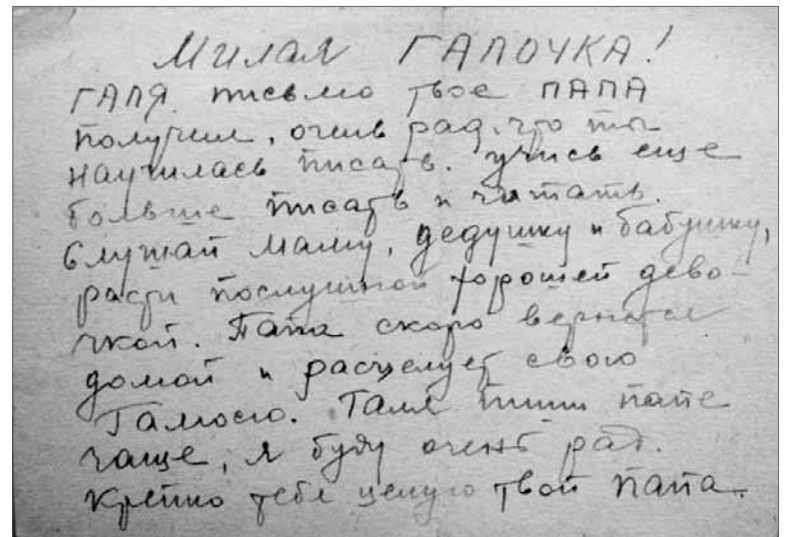 Милая ГАЛОЧКА!
ГАЛЯ письмо твое ПАПА
получил, очень рад, что ты
научилась писать. Учись еще
больше писать и читать.
Слушай маму, дедушку и бабушку,
расти послушной хорошей дево-
чкой. Папа скоро вернется
домой и расцелует свою
Галюсю. Галя пиши папе
чаще, я буду очень рад.
Крепко тебя целую твой папа.